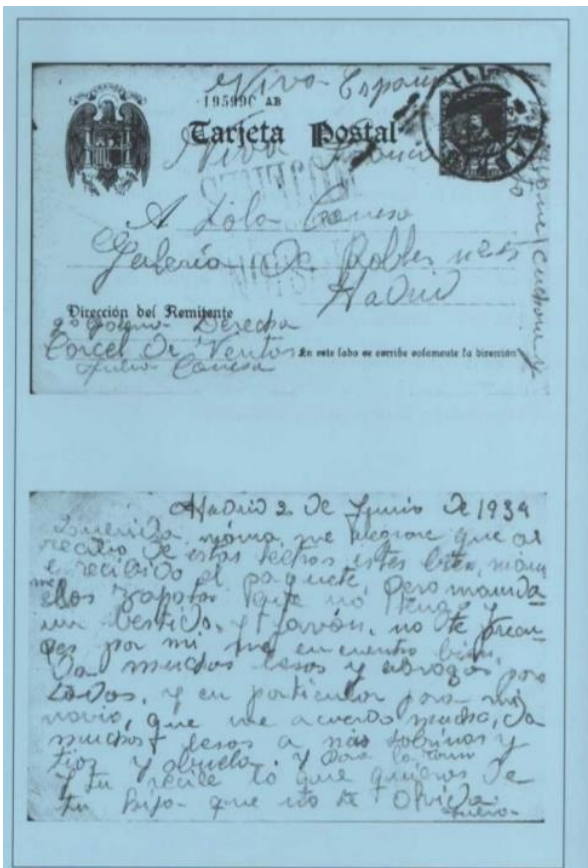 Viva España
195990 AB
Tarjeta Postal
Viva
A Lola Conesa
Galería De Robles
Madrid
Dirección del Remitente
2º Derecha
Carcel De Ventas
En este lado se escribe solamente la dirección
Julia Conesa
Madrid 2 De Junio De 1939
mama, me alegrare que al
recibo De estas letras estes bien, mama
e recibido el paquete, pero manda
me los zapatos que no tengo y
un bestido, y javón, no te preocu
pes por mi, me encuentro bien,
Da muchos besos y abrazos, para
todos, y en particular para mi
novio, que me acuerdo mucho, da
muchos besos a mis sobrinos y
tios y abuela. y para
y tu recibe lo que quieras De
tu hija que no te Olvida
Julia